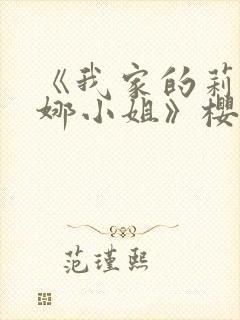 《我家的莉
娜小姐》樱
范瑾熙